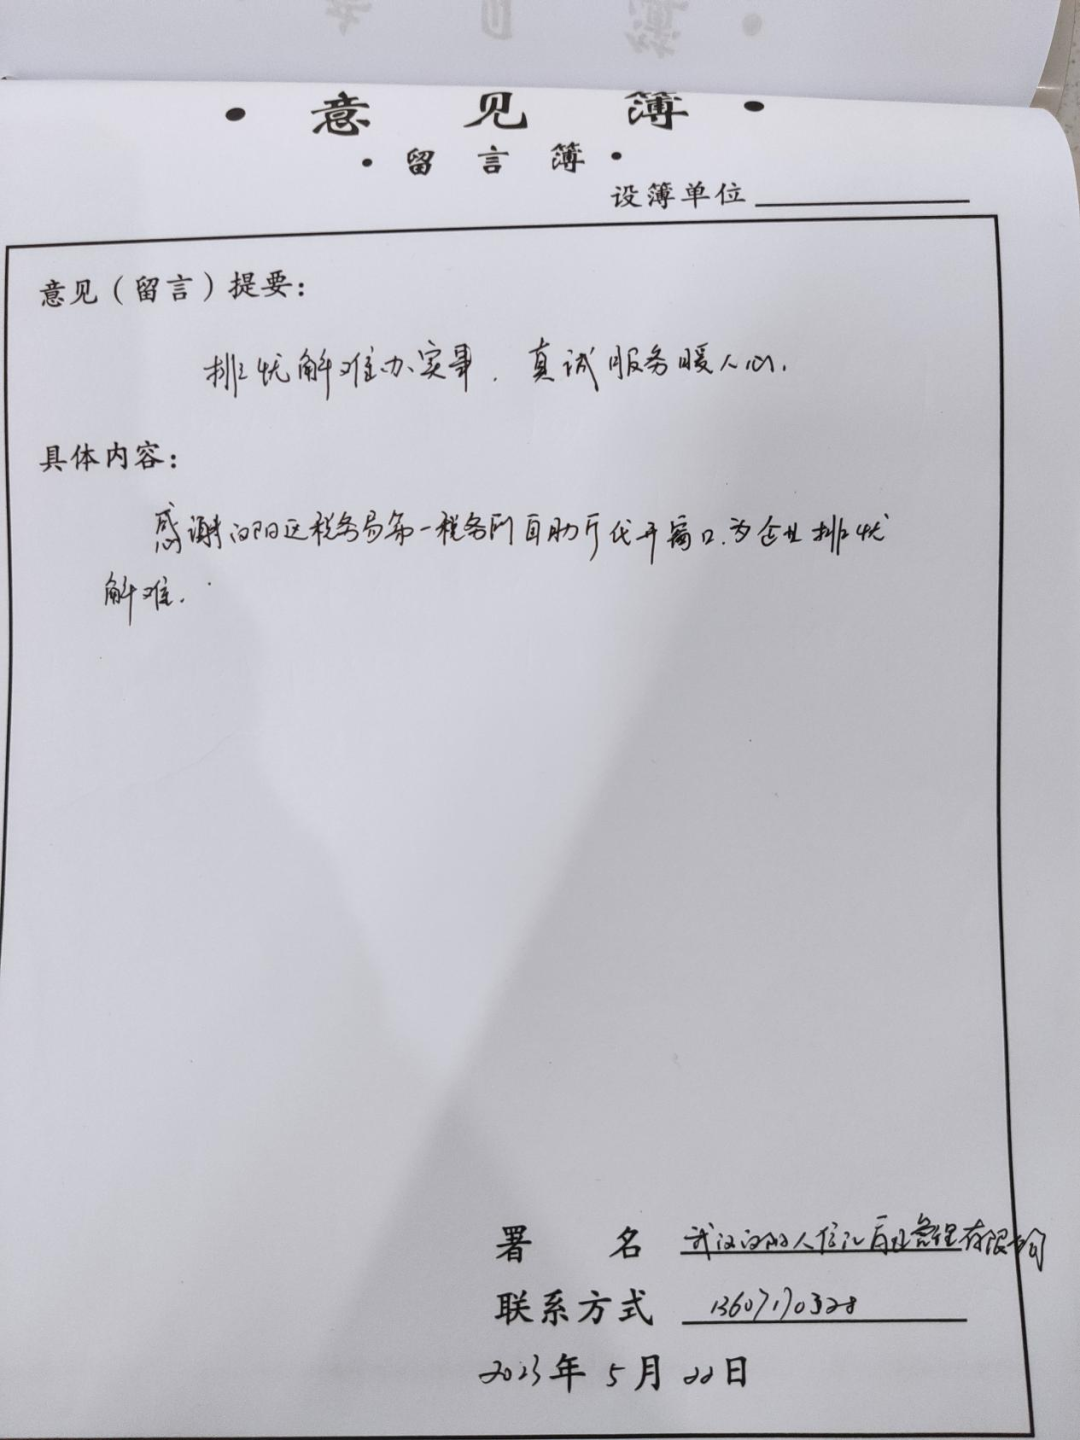 ·意见簿·
·留言簿·
设簿单位
意见（留言）提要：
排忧解难办实事，真诚服务暖人心.
具体内容：
感谢汉阳区税务局第一税务所自助厅代开窗口.为企业排忧
解难.
署名 武汉汉阳人信汇商业管理有限公司
联系方式 13607170328
2023年5月22日